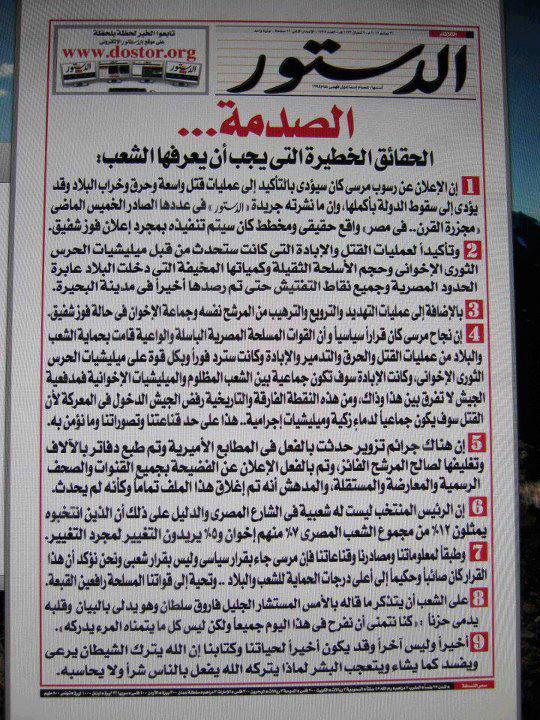 تابعوا الخبر لحظة بلحظة
على موقع الدستور الإلكترونى
www.dostor.org
الثلاثاء
الدستور
أسسها: عصام إسماعيل فهمى عام ١٩٩٥
الصدمة...
الحقائق الخطيرة التى يجب أن يعرفها الشعب:
1 إن الإعلان عن رسوب مرسى كان سيؤدى بالتأكيد إلى عمليات قتل واسعة وحرق وخراب البلاد وقد
يؤدى إلى سقوط الدولة بأكملها، وإن ما نشرته جريدة «الدستور» فى عددها الصادر الخميس الماضى
«مجزرة القرن.. فى مصر» واقع حقيقى ومخطط كان سيتم تنفيذه بمجرد إعلان فوز شفيق.
2 وتأكيداً لعمليات القتل والإبادة التى كانت ستحدث من قبل ميليشيات الحرس
الثورى الإخوانى وحجم الأسلحة الثقيلة وكمياتها المخيفة التى دخلت البلاد عابرة
الحدود المصرية وجميع نقاط التفتيش حتى تم رصدها أخيراً فى مدينة البحيرة.
3 بالإضافة إلى عمليات التهديد والترويع والترهيب من المرشح نفسه وجماعة الإخوان فى حالة فوز شفيق.
4 إن نجاح مرسى كان قراراً سياسياً و أن القوات المسلحة المصرية الباسلة والواعية قامت بحماية الشعب
والبلاد من عمليات القتل والحرق والتدمير والإبادة وكانت سترد فوراً وبكل قوة على ميليشيات الحرس
الثورى الإخوانى، وكانت الإبادة سوف تكون جماعية بين الشعب المظلوم والميليشيات الإخوانية فمدفعية
الجيش لا تفرق بين هذا وذاك، ومن هذه النقطة الفارقة والتاريخية رفض الجيش الدخول فى المعركة لأن
القتل سوف يكون جماعياً لدماء زكية وميليشيات إجرامية.. هذا على حد قناعتنا وتصوراتنا وما نؤمن به.
5 إن هناك جرائم تزوير حدثت بالفعل فى المطابع الأميرية وتم طبع دفاتر بالآلاف
وتغليفها لصالح المرشح الفائز، وتم بالفعل الإعلان عن الفضيحة بجميع القنوات والصحف
الرسمية والمعارضة والمستقلة، والمدهش أنه تم إغلاق هذا الملف تماماً وكأنه لم يحدث.
6 إن الرئيس المنتخب ليست له شعبية فى الشارع المصرى والدليل على ذلك أن الذين انتخبوه
يمثلون ١٢٪ من مجموع الشعب المصرى ٧٪ منهم إخوان و٥٪ يريدون التغيير لمجرد التغيير.
7 وطبقاً لمعلوماتنا ومصادرنا وقناعاتنا فإن مرسى جاء بقرار سياسى وليس بقرار شعبى ونحن نؤكد أن هذا
القرار كان صائباً وحكيماً إلى أعلى درجات الحماية للشعب والبلاد.. وتحية إلى قواتنا المسلحة رافعين القبعة.
8 على الشعب أن يتذكر ما قاله بالأمس المستشار الجليل فاروق سلطان وهو يدلى بالبيان وقلبه
يدمى حزناً «كنا نتمنى أن نفرح فى هذا اليوم جميعاً ولكن ليس كل ما يتمناه المرء يدركه».
9 أخيراً وليس آخراً وقد يكون أخيراً لحياتنا وكتابنا إن الله يترك الشيطان يرعى
ويفسد كما يشاء ويتعجب البشر لماذا يتركه الله يفعل بالناس شراً ولا يحاسبه.
سعر النسخة